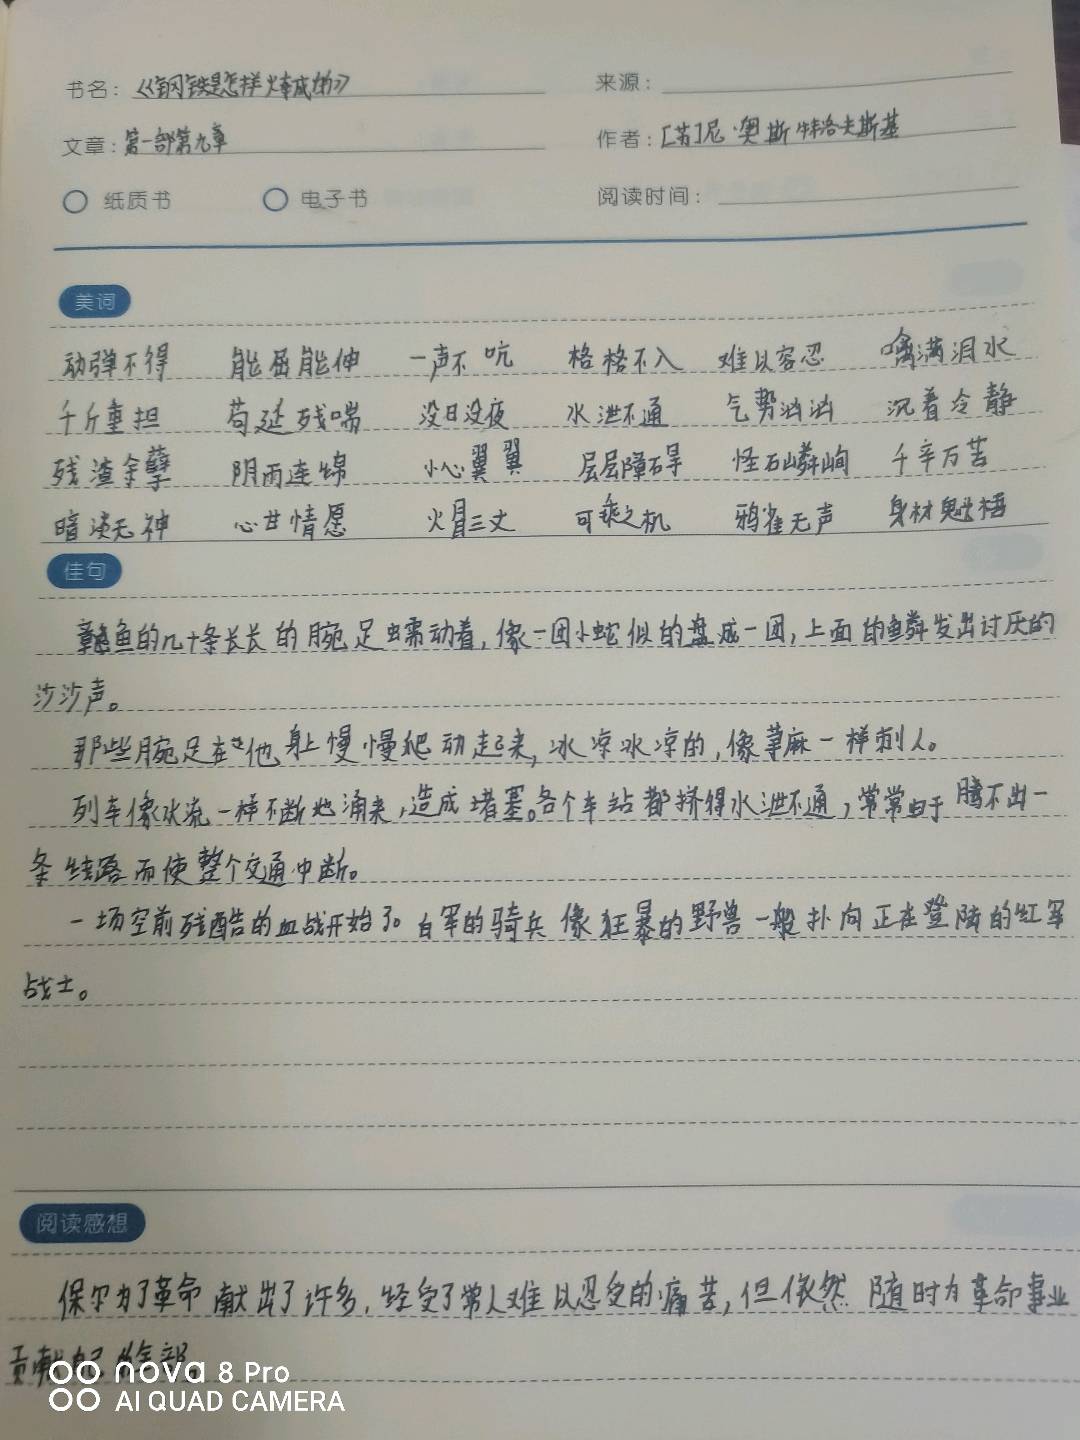 书名：《钢铁是怎样炼成的》 来源：
文章：第一部第九章 作者：[苏]尼·奥斯特洛夫斯基
纸质书 电子书 阅读时间：
美词
动弹不得 能屈能伸 一声不吭 格格不入 难以容忍 噙满泪水
千斤重担 苟延残喘 没日没夜 水泄不通 气势汹汹 沉着冷静
残渣余孽 阴雨连绵 小心翼翼 层层障碍 怪石嶙峋 千辛万苦
暗淡无神 心甘情愿 火冒三丈 可乘之机 鸦雀无声 身材魁梧
佳句
章鱼的几十条长长的腕足蠕动着，像一团小蛇似的盘成一团，上面的鳞发出讨厌的
沙沙声。
那些腕足在他身上慢慢爬动起来，冰凉冰凉的，像荨麻一样刺人。
列车像水流一样不断地涌来，造成堵塞。各个车站都挤得水泄不通，常常由于腾不出一
条线路而使整个交通中断。
一场空前残酷的血战开始了。白军的骑兵像狂暴的野兽一般扑向正在登陆的红军
战士。
阅读感想
保尔为了革命献出了许多，经受了常人难以忍受的痛苦，但依然随时为革命事业
贡献自己的全部。
nova 8 Pro
AI QUAD CAMERA